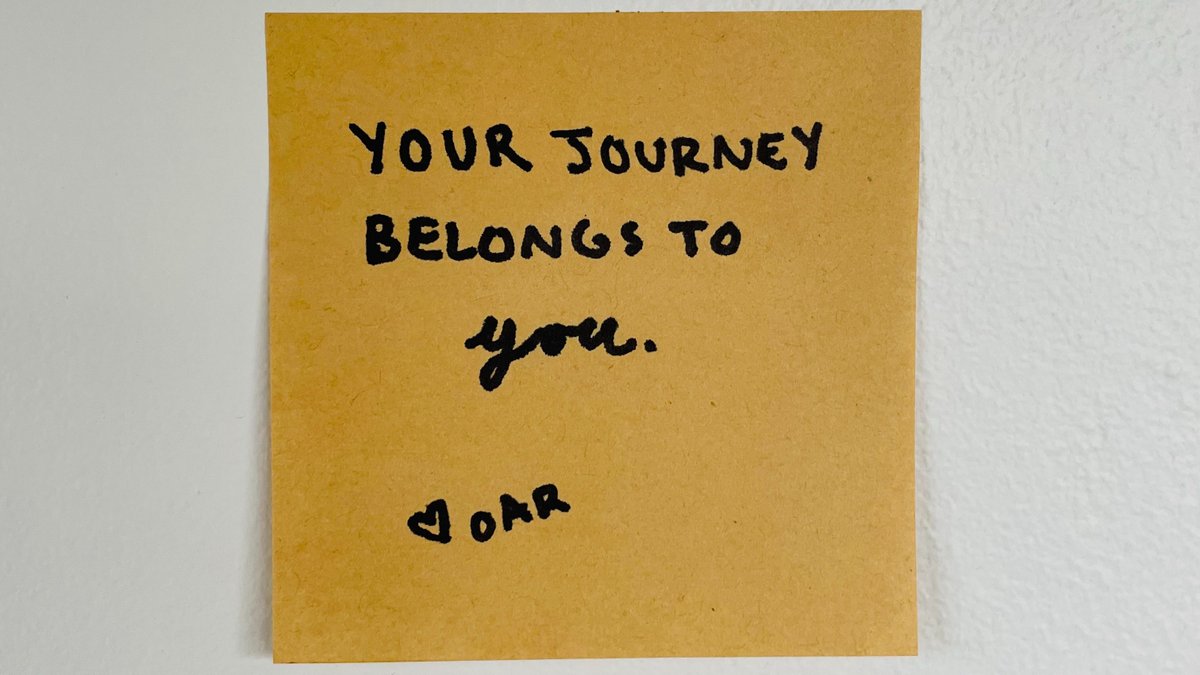 YOUR JOURNEY
BELONGS TO
you.
♡ OAR